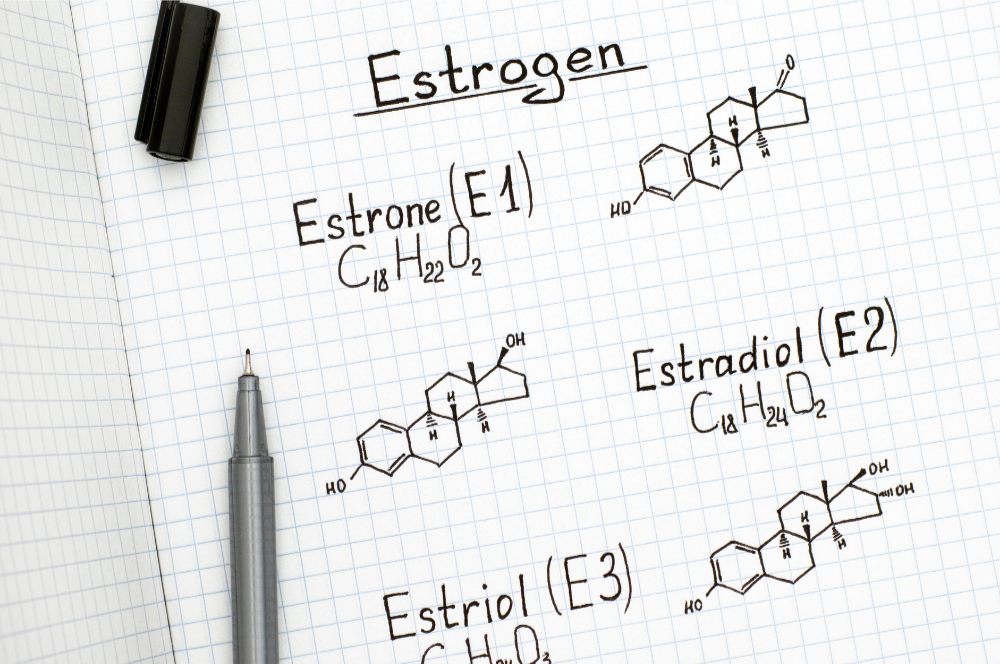 Estrogen
O
H
H
H
HO
Estrone (E1)
C₁₈H₂₂O₂
OH
H
H
H
HO
Estradiol (E2)
C₁₈H₂₄O₂
OH
OH
H
H
H
HO
Estriol (E3)